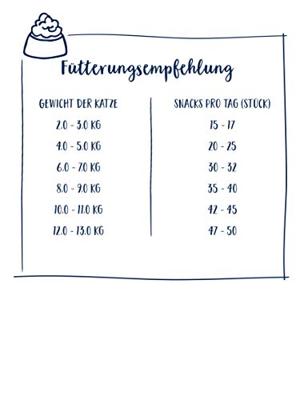 Fütterungsempfehlung
GEWICHT DER KATZE SNACKS PRO TAG (STÜCK)
2.0 - 3.0 KG 15 - 17
4.0 - 5.0 KG 20 - 25
6.0 - 7.0 KG 30 - 32
8.0 - 9.0 KG 35 - 40
10.0 - 11.0 KG 42 - 45
12.0 - 13.0 KG 47 - 50